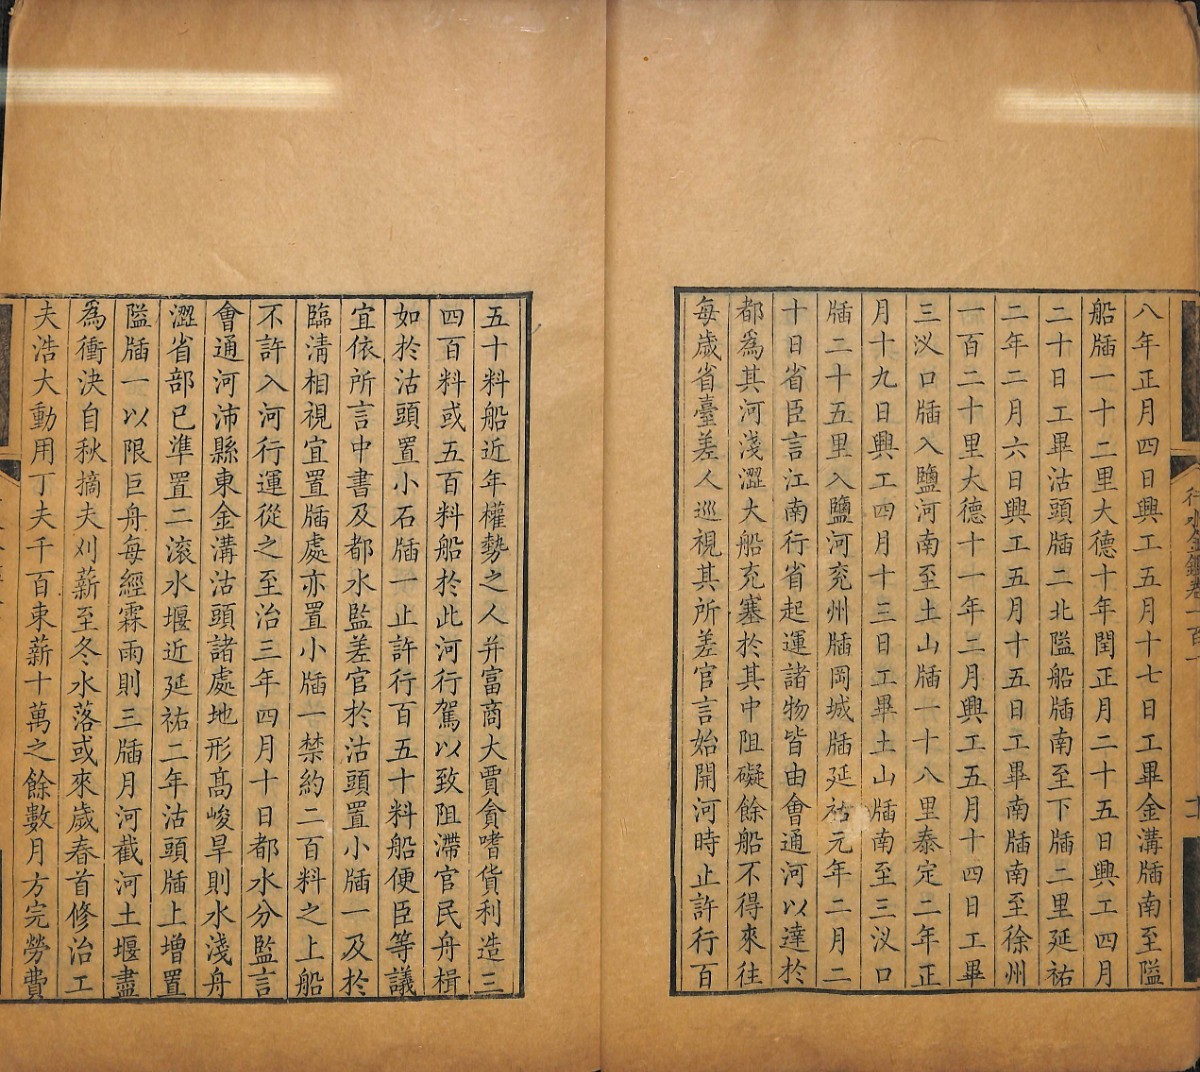 八年正月四日興工五月十七日工畢金溝牐南至隘
船牐一十二里大德十年閏正月二十五日興工四月
二十日工畢沽頭牐二北隘船牐南至下牐二里延祐
二年二月六日興工五月十五日工畢南牐南至徐州
一百二十里大德十一年二月興工五月十四日工畢
三汊口牐入鹽河南至土山牐一十八里泰定二年正
月十九日興工四月十三日工畢土山牐南至三汊口
牐二十五里入鹽河兖州牐岡城牐延祐元年二月二
十日省臣言江南行省起運諸物皆由會通河以達於
都爲其河淺澀大船充塞於其中阻礙餘船不得來往
每歲省臺差人巡視其所差官言始開河時止許行百
五十料船近年權勢之人并富商大賈貪嗜貨利造三
四百料或五百料船於此河行駕以致阻滯官民舟楫
如於沽頭置小石牐一止許行百五十料船便臣等議
宜依所言中書及都水監差官於沽頭置小牐一及於
臨淸相視宜置牐處亦置小牐一禁約二百料之上船
不許入河行運從之至治三年四月十日都水分監言
會通河沛縣東金溝沽頭諸處地形高峻旱則水淺舟
澀省部已準置二滾水堰近延祐二年沽頭牐上增置
隘牐一以限巨舟每經霖雨則三牐月河截河土堰盡
爲衝決自秋摘夫刈薪至冬水落或來歲春首修治工
夫浩大動用丁夫千百束薪十萬之餘數月方完勞費